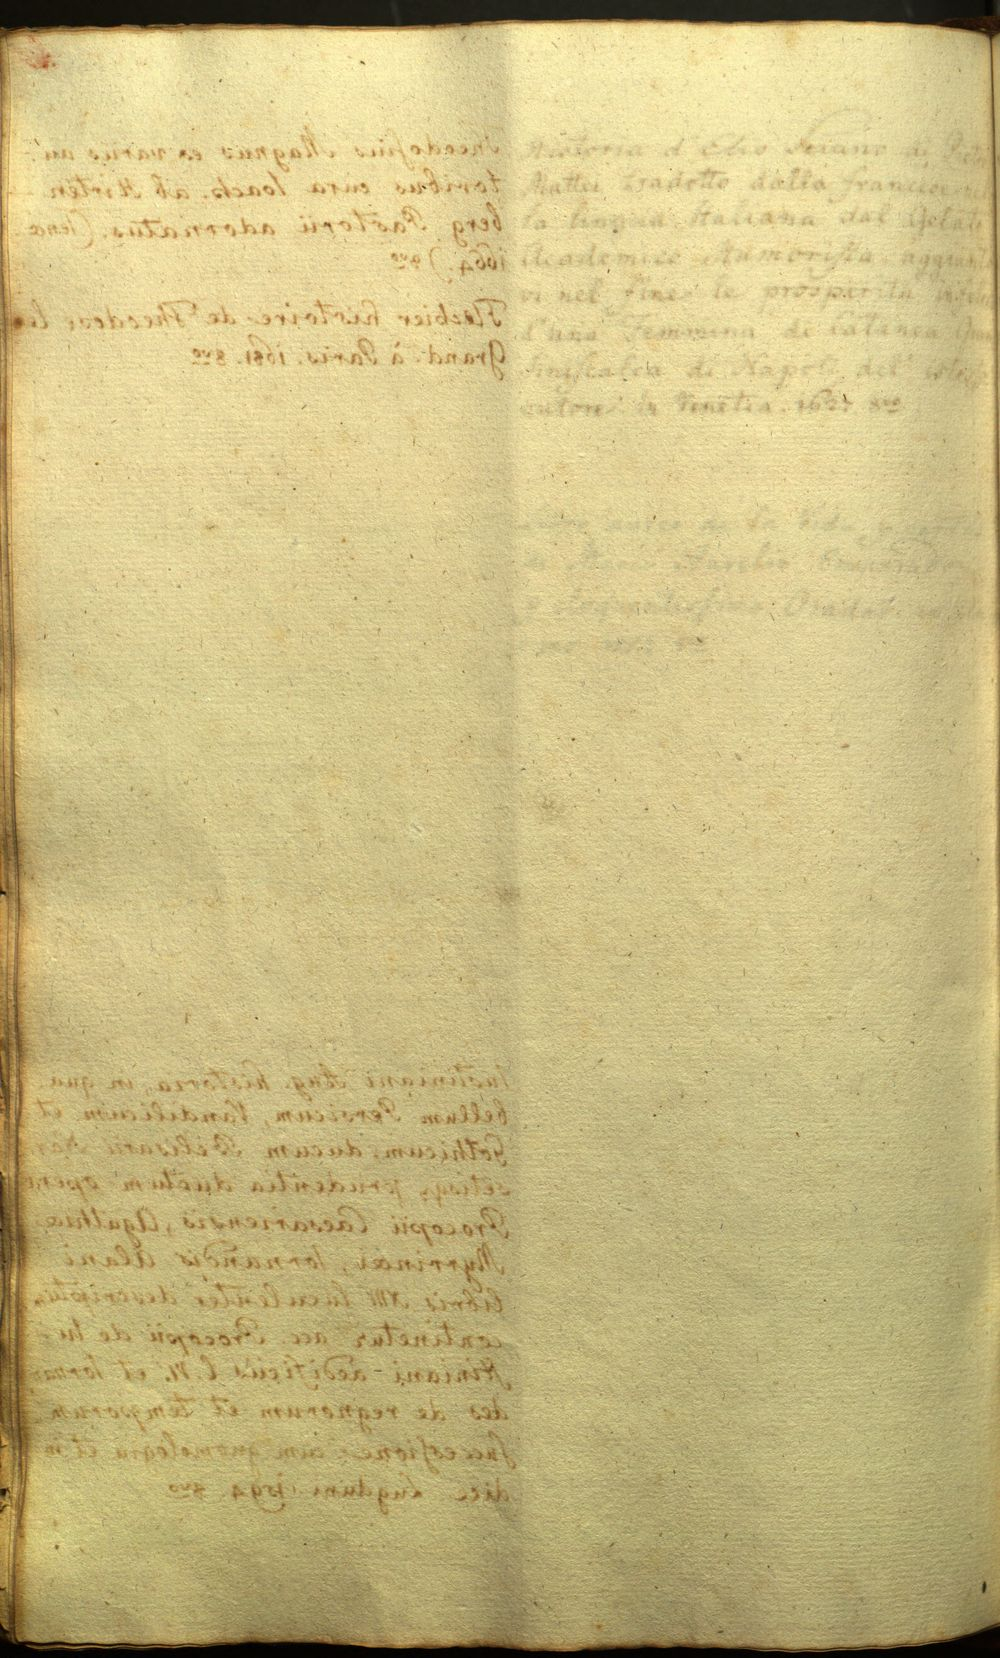 Theodosius Magnus ex variis au-
toribus cura Ioach. ab Hirten
berg Pastorii adornatus. (Ienae
1664.) 8vo
Flechier histoire de Theodose le
Grand. à Paris. 1681. 8vo
Historia d'Elio Seiano di
Mattei tradotto dalla francese
la lingua Italiana dal Gelati
Academico Humorista, aggiunta
vi nel fine le prosperità
d'una Femmina di Catanea Gran
Siniscalca di Napoli del istess
autore in Venetia 8vo
aureo de la Vida
de Marco Aurelio Emperador
y eloquentissimo Orador
Iustiniani Aug. historia, in qua
bellum Persicum, Vandilicum et
Gothicum, ducum Belisarii Nar-
setisq. prudentia ductum opera
Procopii Caesariensis, Agathiae
Myrrinaei, Iornandis Alani
libris XIII luculenter descriptum
continetur acc. Procopii de Iu-
stiniani aedificiis l. VI. et Iornan
des de regnorum et temporum
successione: cum gnomologia et in-
dice Lugduni 1594 8vo